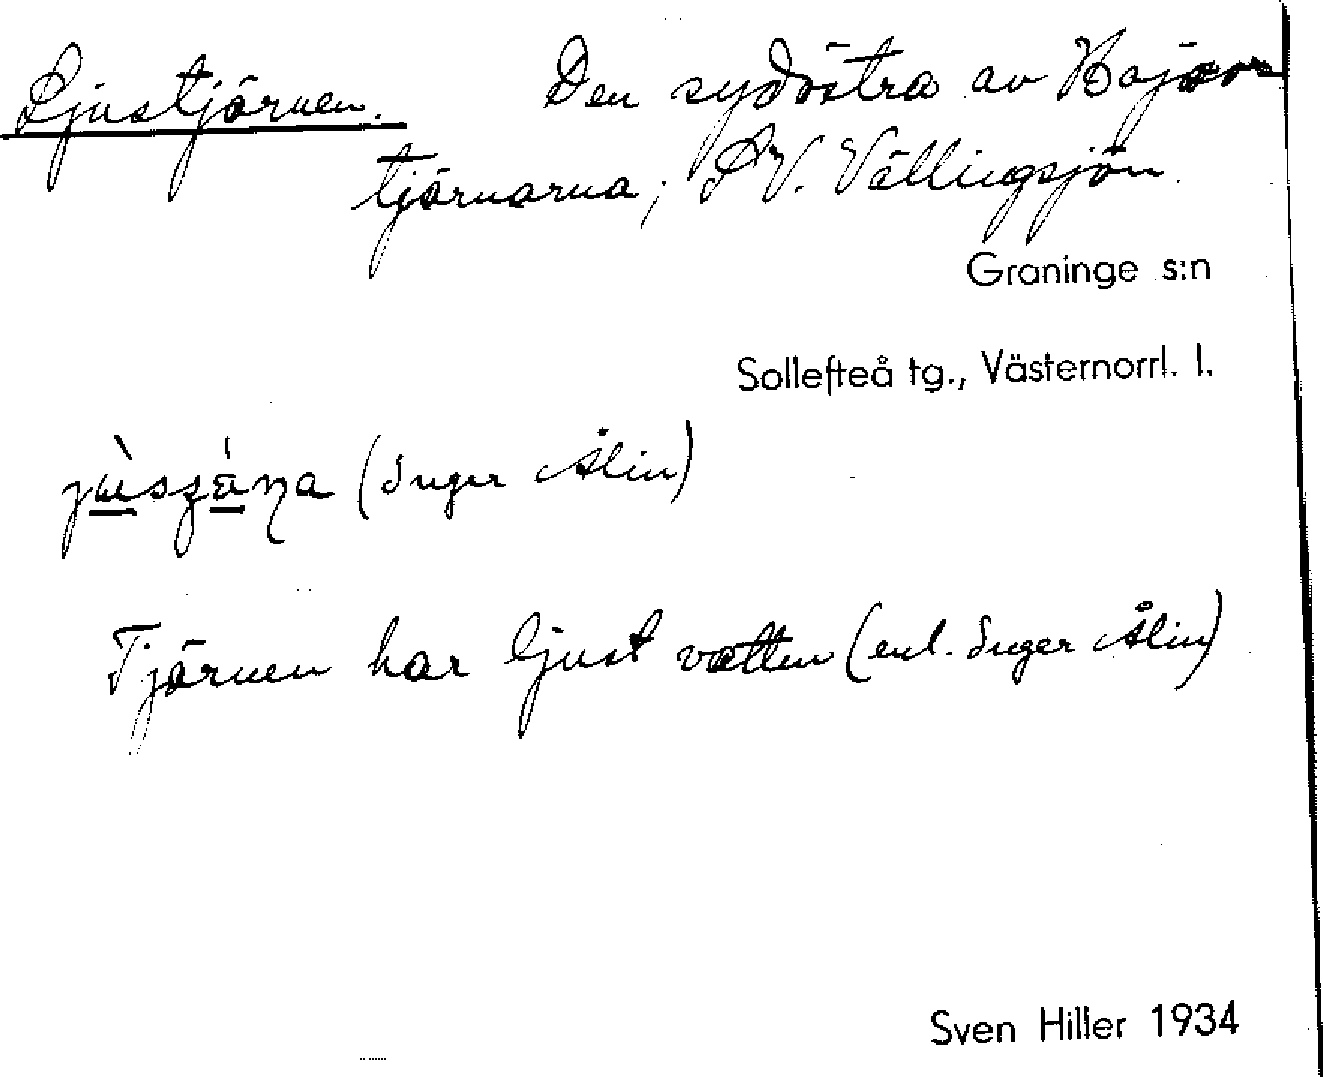 Ljustjärnen. Den sydöstra av
tjärnarna, SV. Vällingsjön.
Graninge s:n
Sollefteå tg., Västernorrl. l.
(Inger Ålin)
Tjärnen har ljust vatten (enl. Inger Ålin)
Sven Hiller 1934